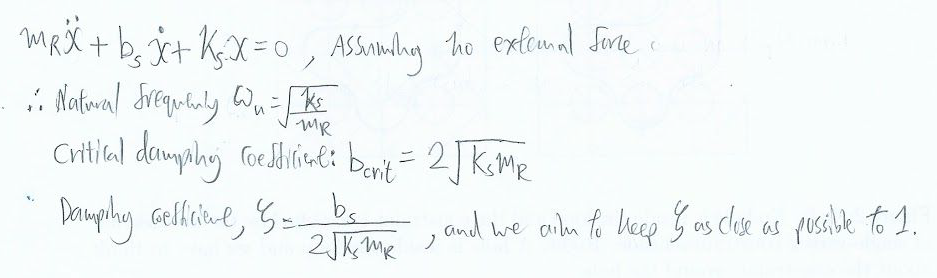 m_R ẍ + b_s ẋ + K_s x = 0 , Assuming no external force .
∴ Natural frequency ω_n = √(k_s/m_R)
Critical damping coefficient: b_crit = 2√(K_s m_R)
Damping coefficient, ζ = b_s/(2√(K_s m_R)) , and we aim to keep ζ as close as possible to 1.